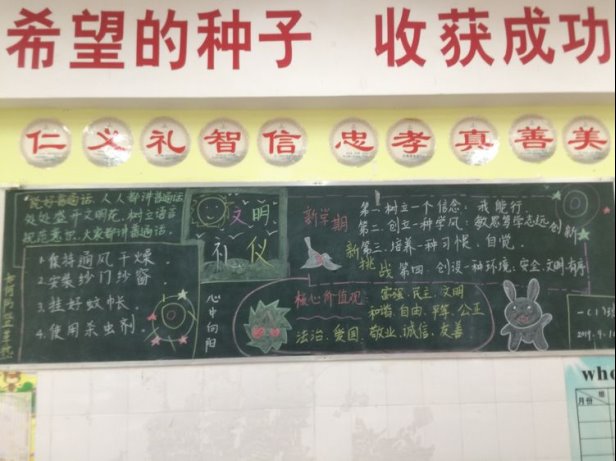 希望的种子 收获成功
仁义礼智信 忠孝真善美
说好普通话,人人都讲普通话
处处盛开文明花,树立语言
规范意识,大家都讲普通话。
1.保持通风干燥
2.安装纱门纱窗
3.挂好蚊帐
4.使用杀虫剂.
文明
礼仪
心中向阳
新学期
新
挑
战
第一.树立一个信念:我能行.
第二.创立一种学风:敏思笃学志远创新
第三.培养一种习惯.自觉.
第四.创设一种环境:安全.文明.有序
核心价值观:富强.民主.文明
和谐.自由.平等.公正
法治.爱国.敬业.诚信.友善
一(1)班
2019.9.1
who
月份